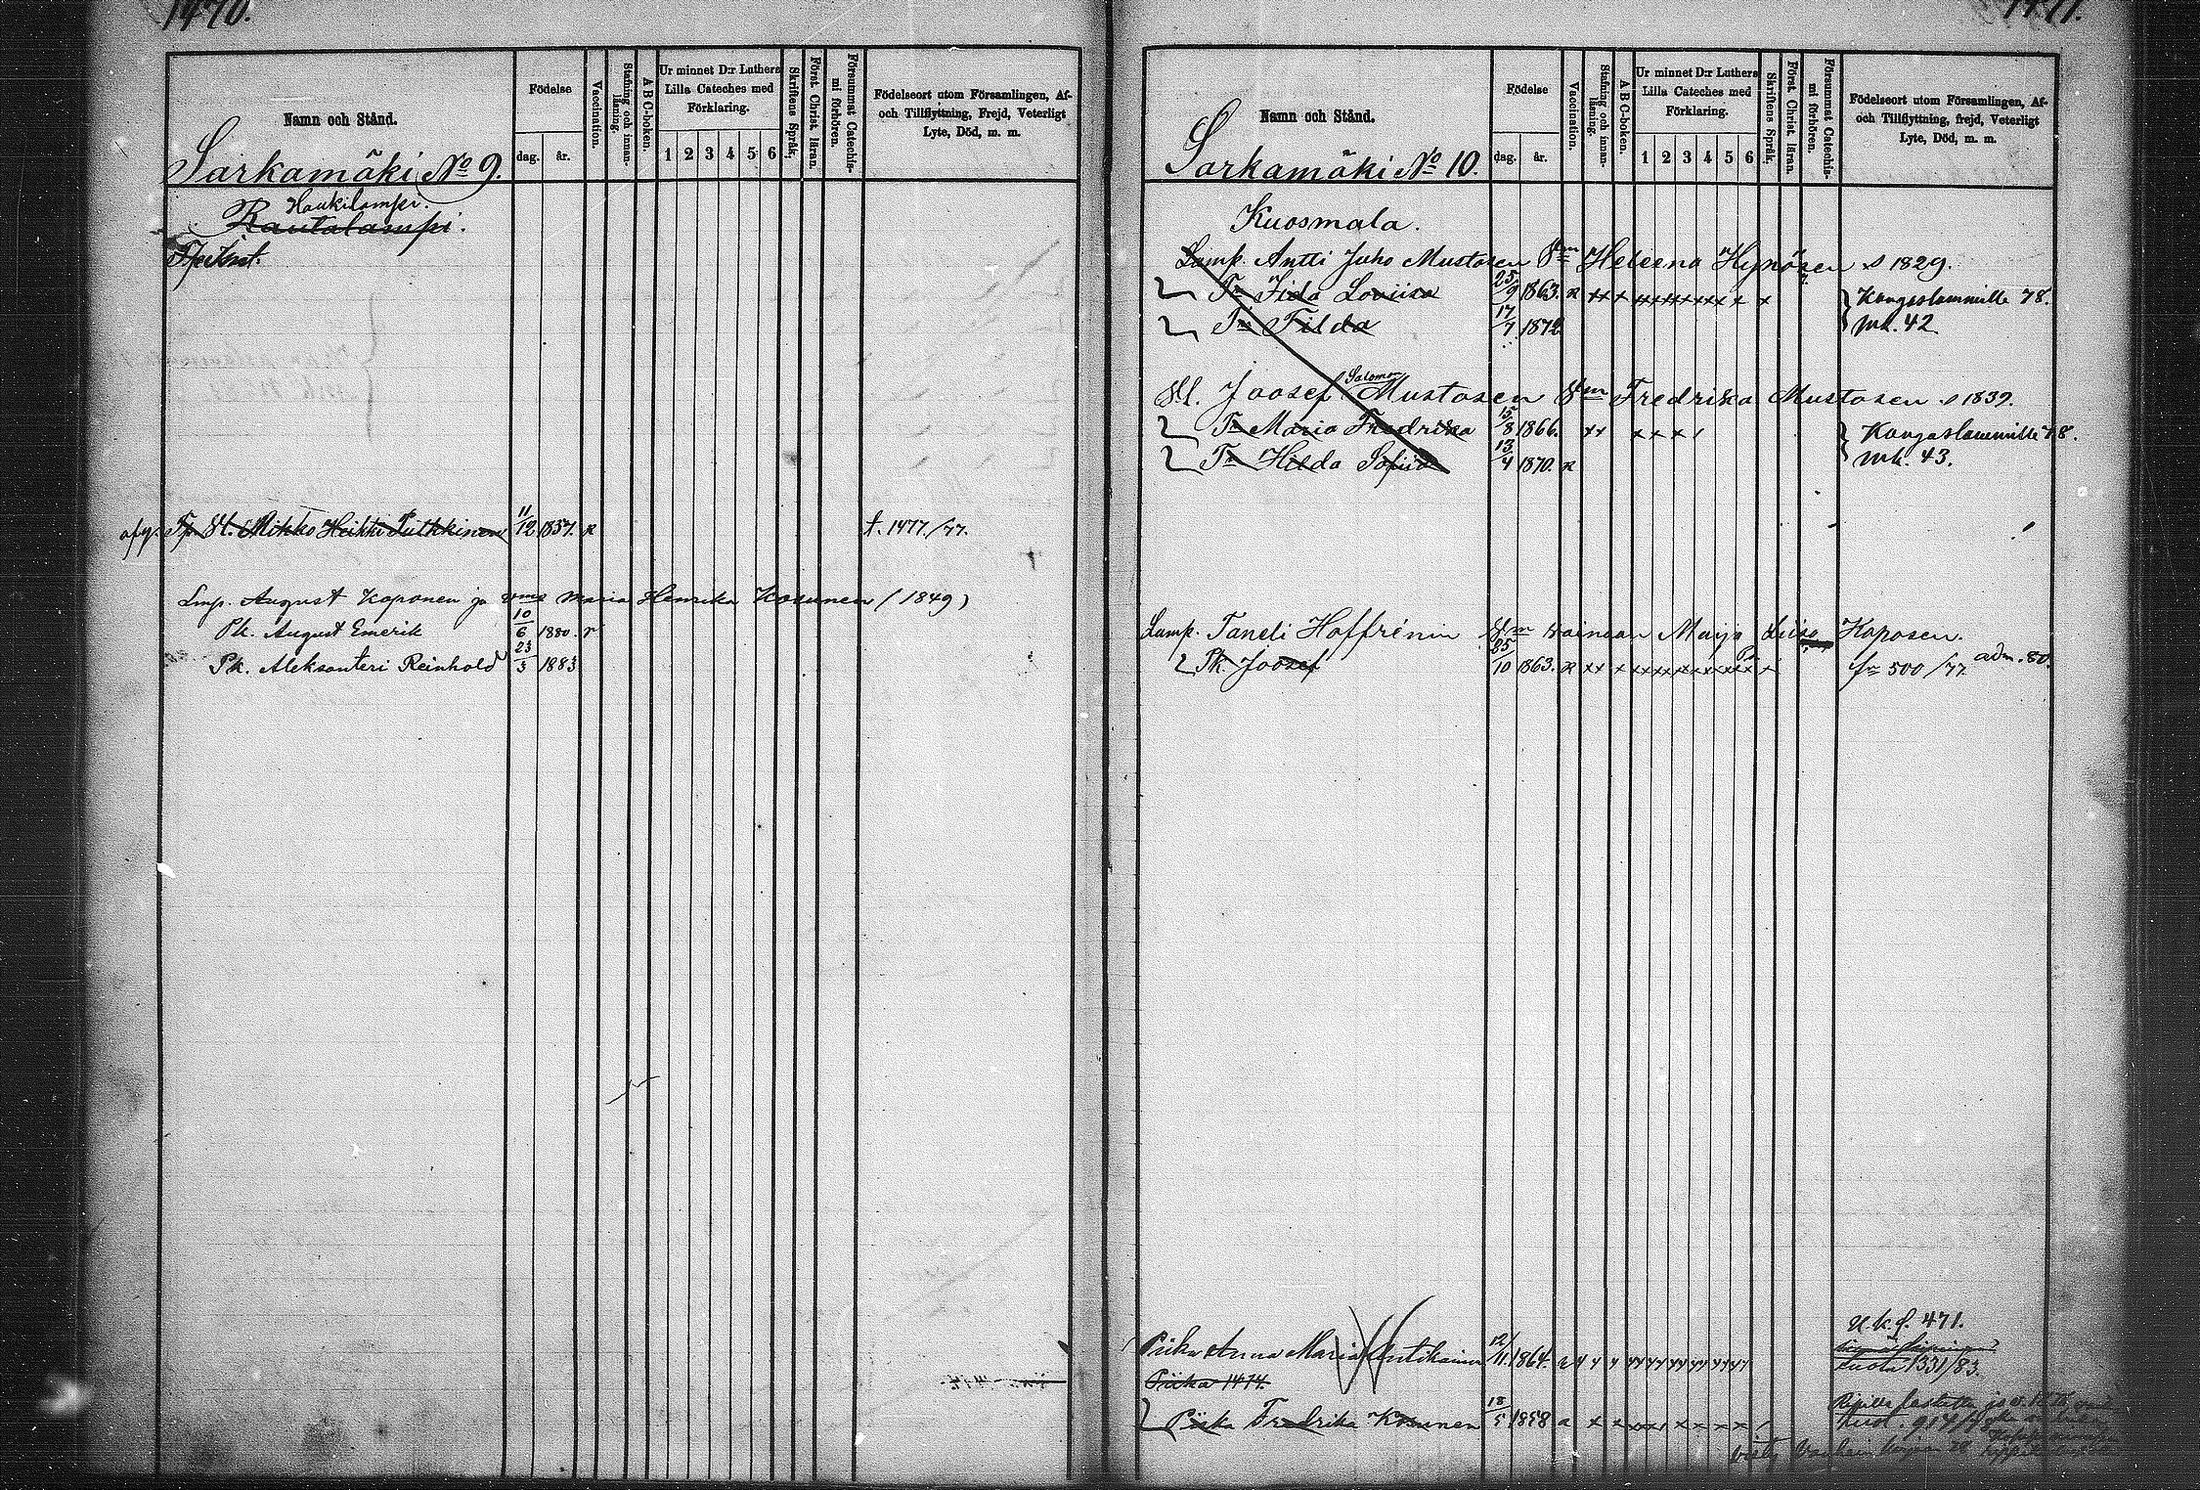 1470.
Namn och Stånd.
Födelse
dag.
år.
Vaccination.
Stafning och innanläsning.
A B C-boken.
Ur minnet D:r Luthers
Lilla Cateches med
Förklaring.
1 2 3 4 5 6
Skriftens Språk.
Först. Christ. läran.
Försummat Catechismi förhören.
Födelseort utom Församlingen, Af-
och Tillflyttning, Frejd, Veterligt
Lyte, Död, m. m.
Sarkamäki No 9.
Haukilampi.
Rautalampi.
afg. Tp. Sl. Mikko Heikki Putkkinen 11/12 1837. x t. 1477./77.
Lmp. August Koponen ja vmo Maria Henrika Kosunen (1849)
Pk. August Emerik 10/6 1880. r
Pk. Aleksanteri Reinhold 23/3 1883
1471.
Namn och Stånd.
Födelse
dag.
år.
Vaccination.
Stafning och innanläsning.
A B C-boken.
Ur minnet D:r Luthers
Lilla Cateches med
Förklaring.
1 2 3 4 5 6
Skriftens Språk.
Först. Christ. läran.
Försummat Catechismi förhören.
Födelseort utom Församlingen, Af-
och Tillflyttning, frejd, Veterligt
Lyte, Död, m. m.
Sarkamäki No 10.
Kuosmala.
Lamp. Antti Juho Mustosen Vm Heleena Hynösen s 1829.
Tr Iida Loviisa 25/9 1863. x xx x xxxxxxxx x x Kangaslammille 78.
Tr Tilda 17/7 1872 mk. 42
Sl. Joosef Salomon Mustosen Vm Fredrika Mustosen s 1839.
Tr Maria Fredrika 15/8 1866. xx xxx/ Kangaslammille 78.
Tr Hilda Sofiia 13/4 1870. x mk. 43.
Lamp. Taneli Hoffrénin Vm vainaan Maija Liisa Koposen.
Pk. Joosef 25/10 1863. x xx x xxxxxxxxx x fr 500/77. adm. 80.
U.k.f. 471.
Piika Anna Maria Antikainen 12/11 1864. 1331/83.
Piika 1474.
Piika Fredrika Kosunen 18/5 1858